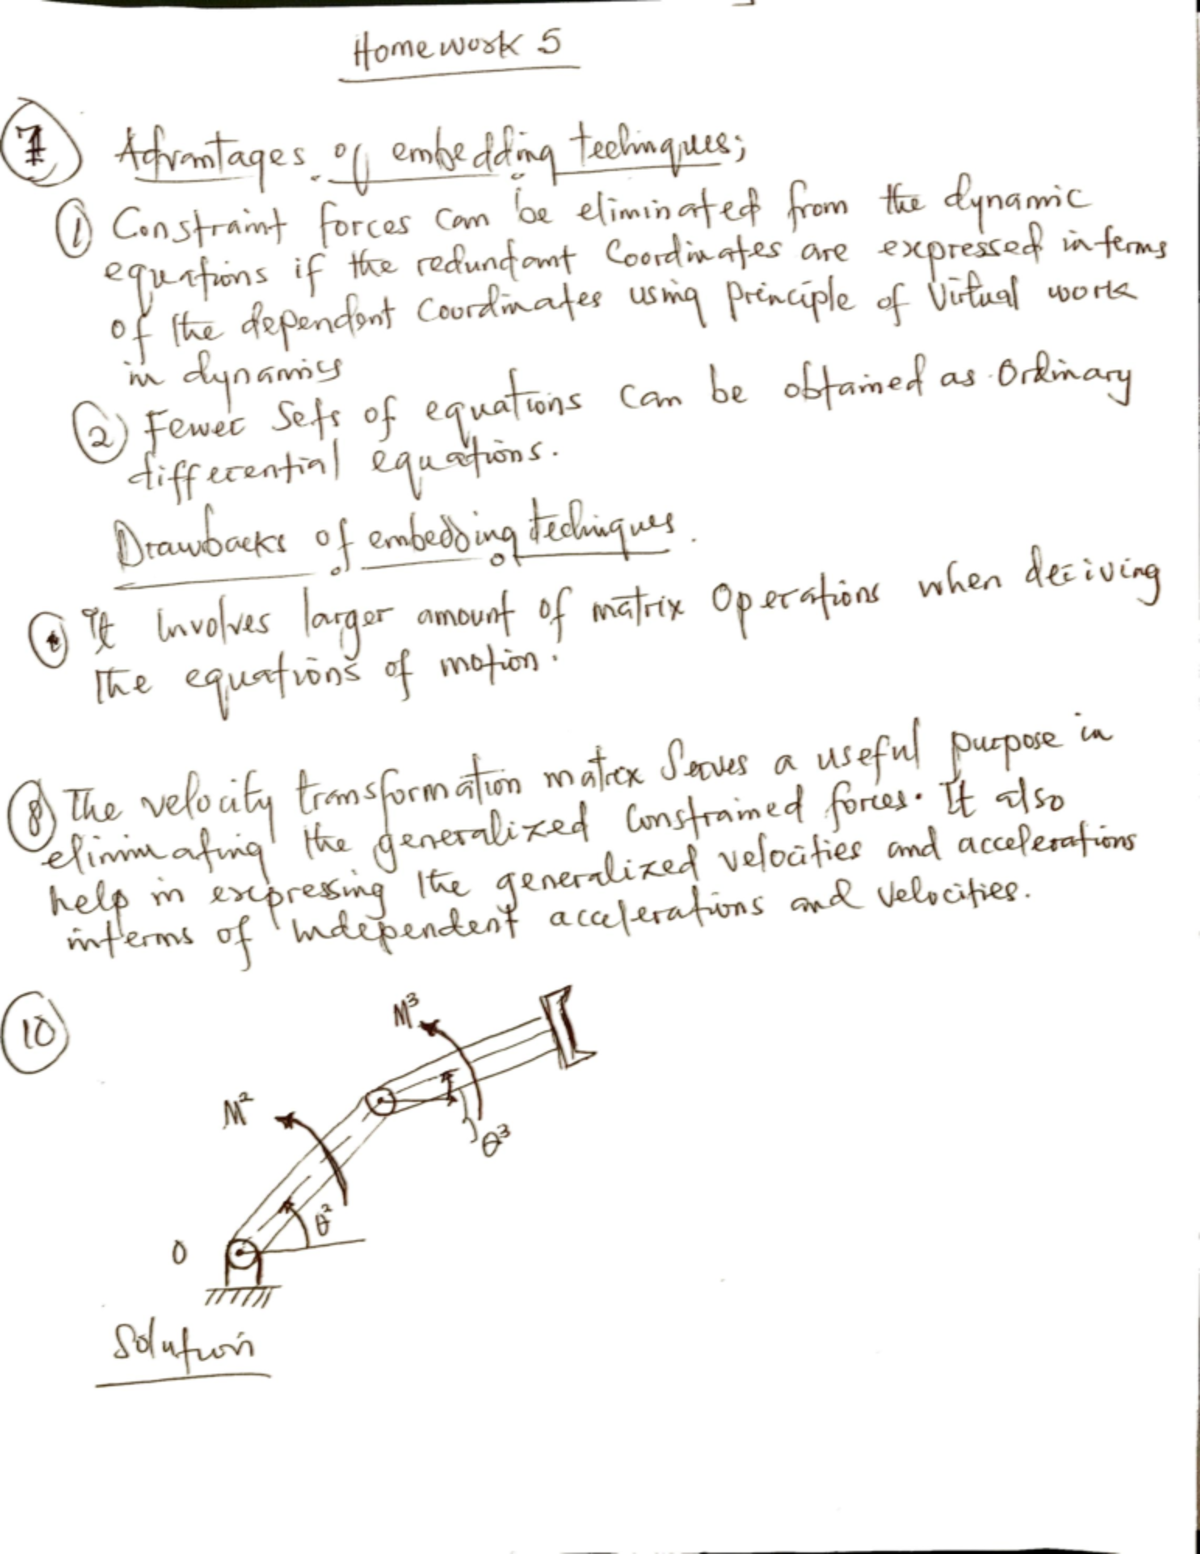 Homework 5
7 Advantages of embedding techniques;
① Constraint forces can be eliminated from the dynamic
equations if the redundant Coordinates are expressed interms
of the dependent Coordinates using principle of Virtual work
in dynamics
② Fewer Sets of equations can be obtained as Ordinary
differential equations.
Drawbacks of embedding techniques.
It Involves larger amount of matrix Operations when deriving
the equations of motion.
⑧ The velocity transformation matrix Serves a useful purpose in
eliminating the generalized Constrained forces. It also
help in expressing the generalized velocities and accelerations
interms of independent accelerations and velocities.
⑩
M³
M²
θ³
θ²
O
Solution